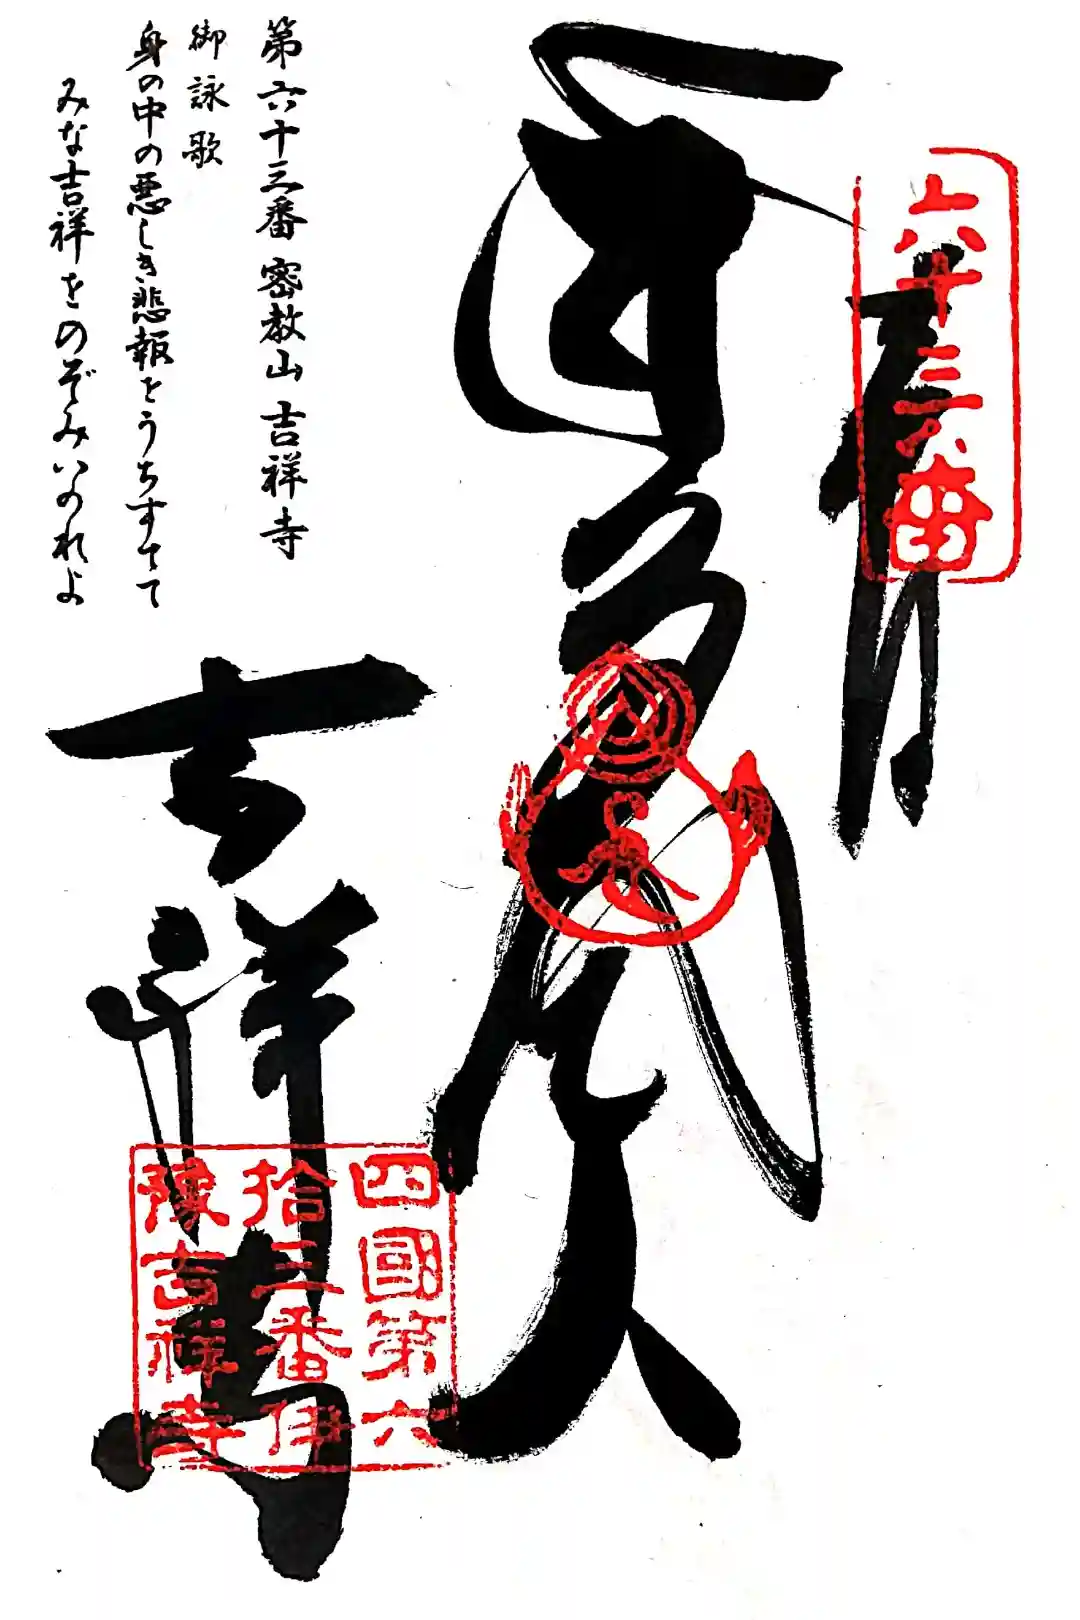 奉納
六十三番
毘沙門天
第六十三番 密教山 吉祥寺
御詠歌
身の中の悪しき悲報をうちすてて
みな吉祥をのぞみいのれよ
吉祥寺
四國第六
拾三番伊
豫吉祥寺